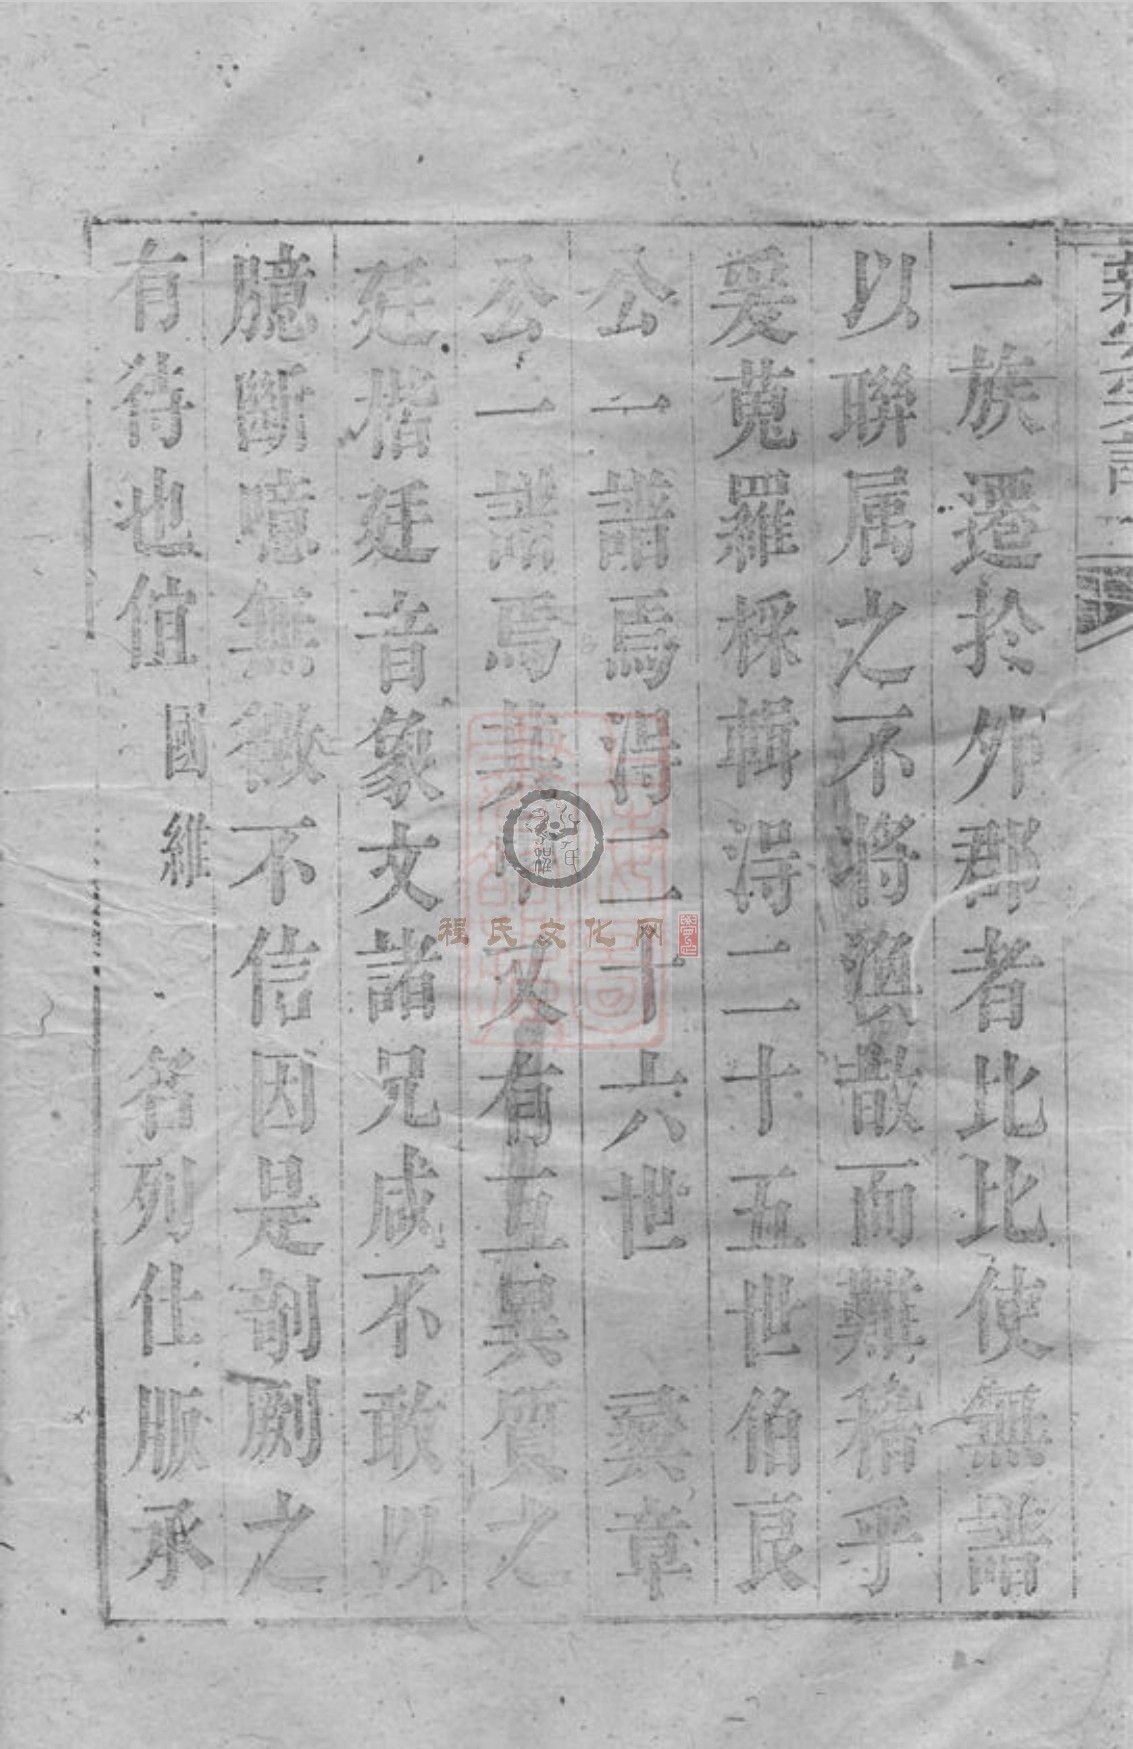 一族遷於外郡者比比使無譜
以聯属之不將渙散而難稽乎
爰蒐羅採輯得二十五世伯良
公一譜焉得二十六世 奕章
公一譜焉其中又有互異質之
廷楷廷音象文諸兄咸不敢以
臆斷噫無徵不信因是剞劂之
有待也值國維 名列仕版承
程氏文化网